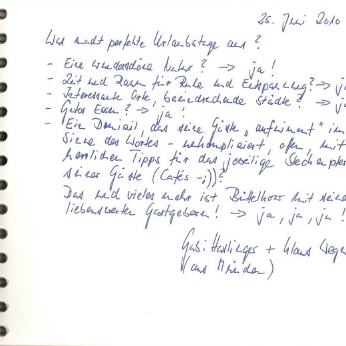 25. Juni 2010
Was macht perfekte Urlaubstage aus?
- Eine wunderschöne Natur? → ja!
- Zeit und Raum für Ruhe und Entspannung? → j
- Interessante Orte, beeindruckende Städte? →
- Gutes Essen? → ja!
- Ein Domizil, das seine Gäste "aufnimmt" im
Sinne des Wortes - unkompliziert, offen, mit
herrlichen Tipps für das jeweilige
seiner Gäste (Cafés ;-))?
Das und vieles mehr ist mit seinen
liebenswerten Gastgebern! → ja, ja, ja!
Gabi + Klaus
(aus München)